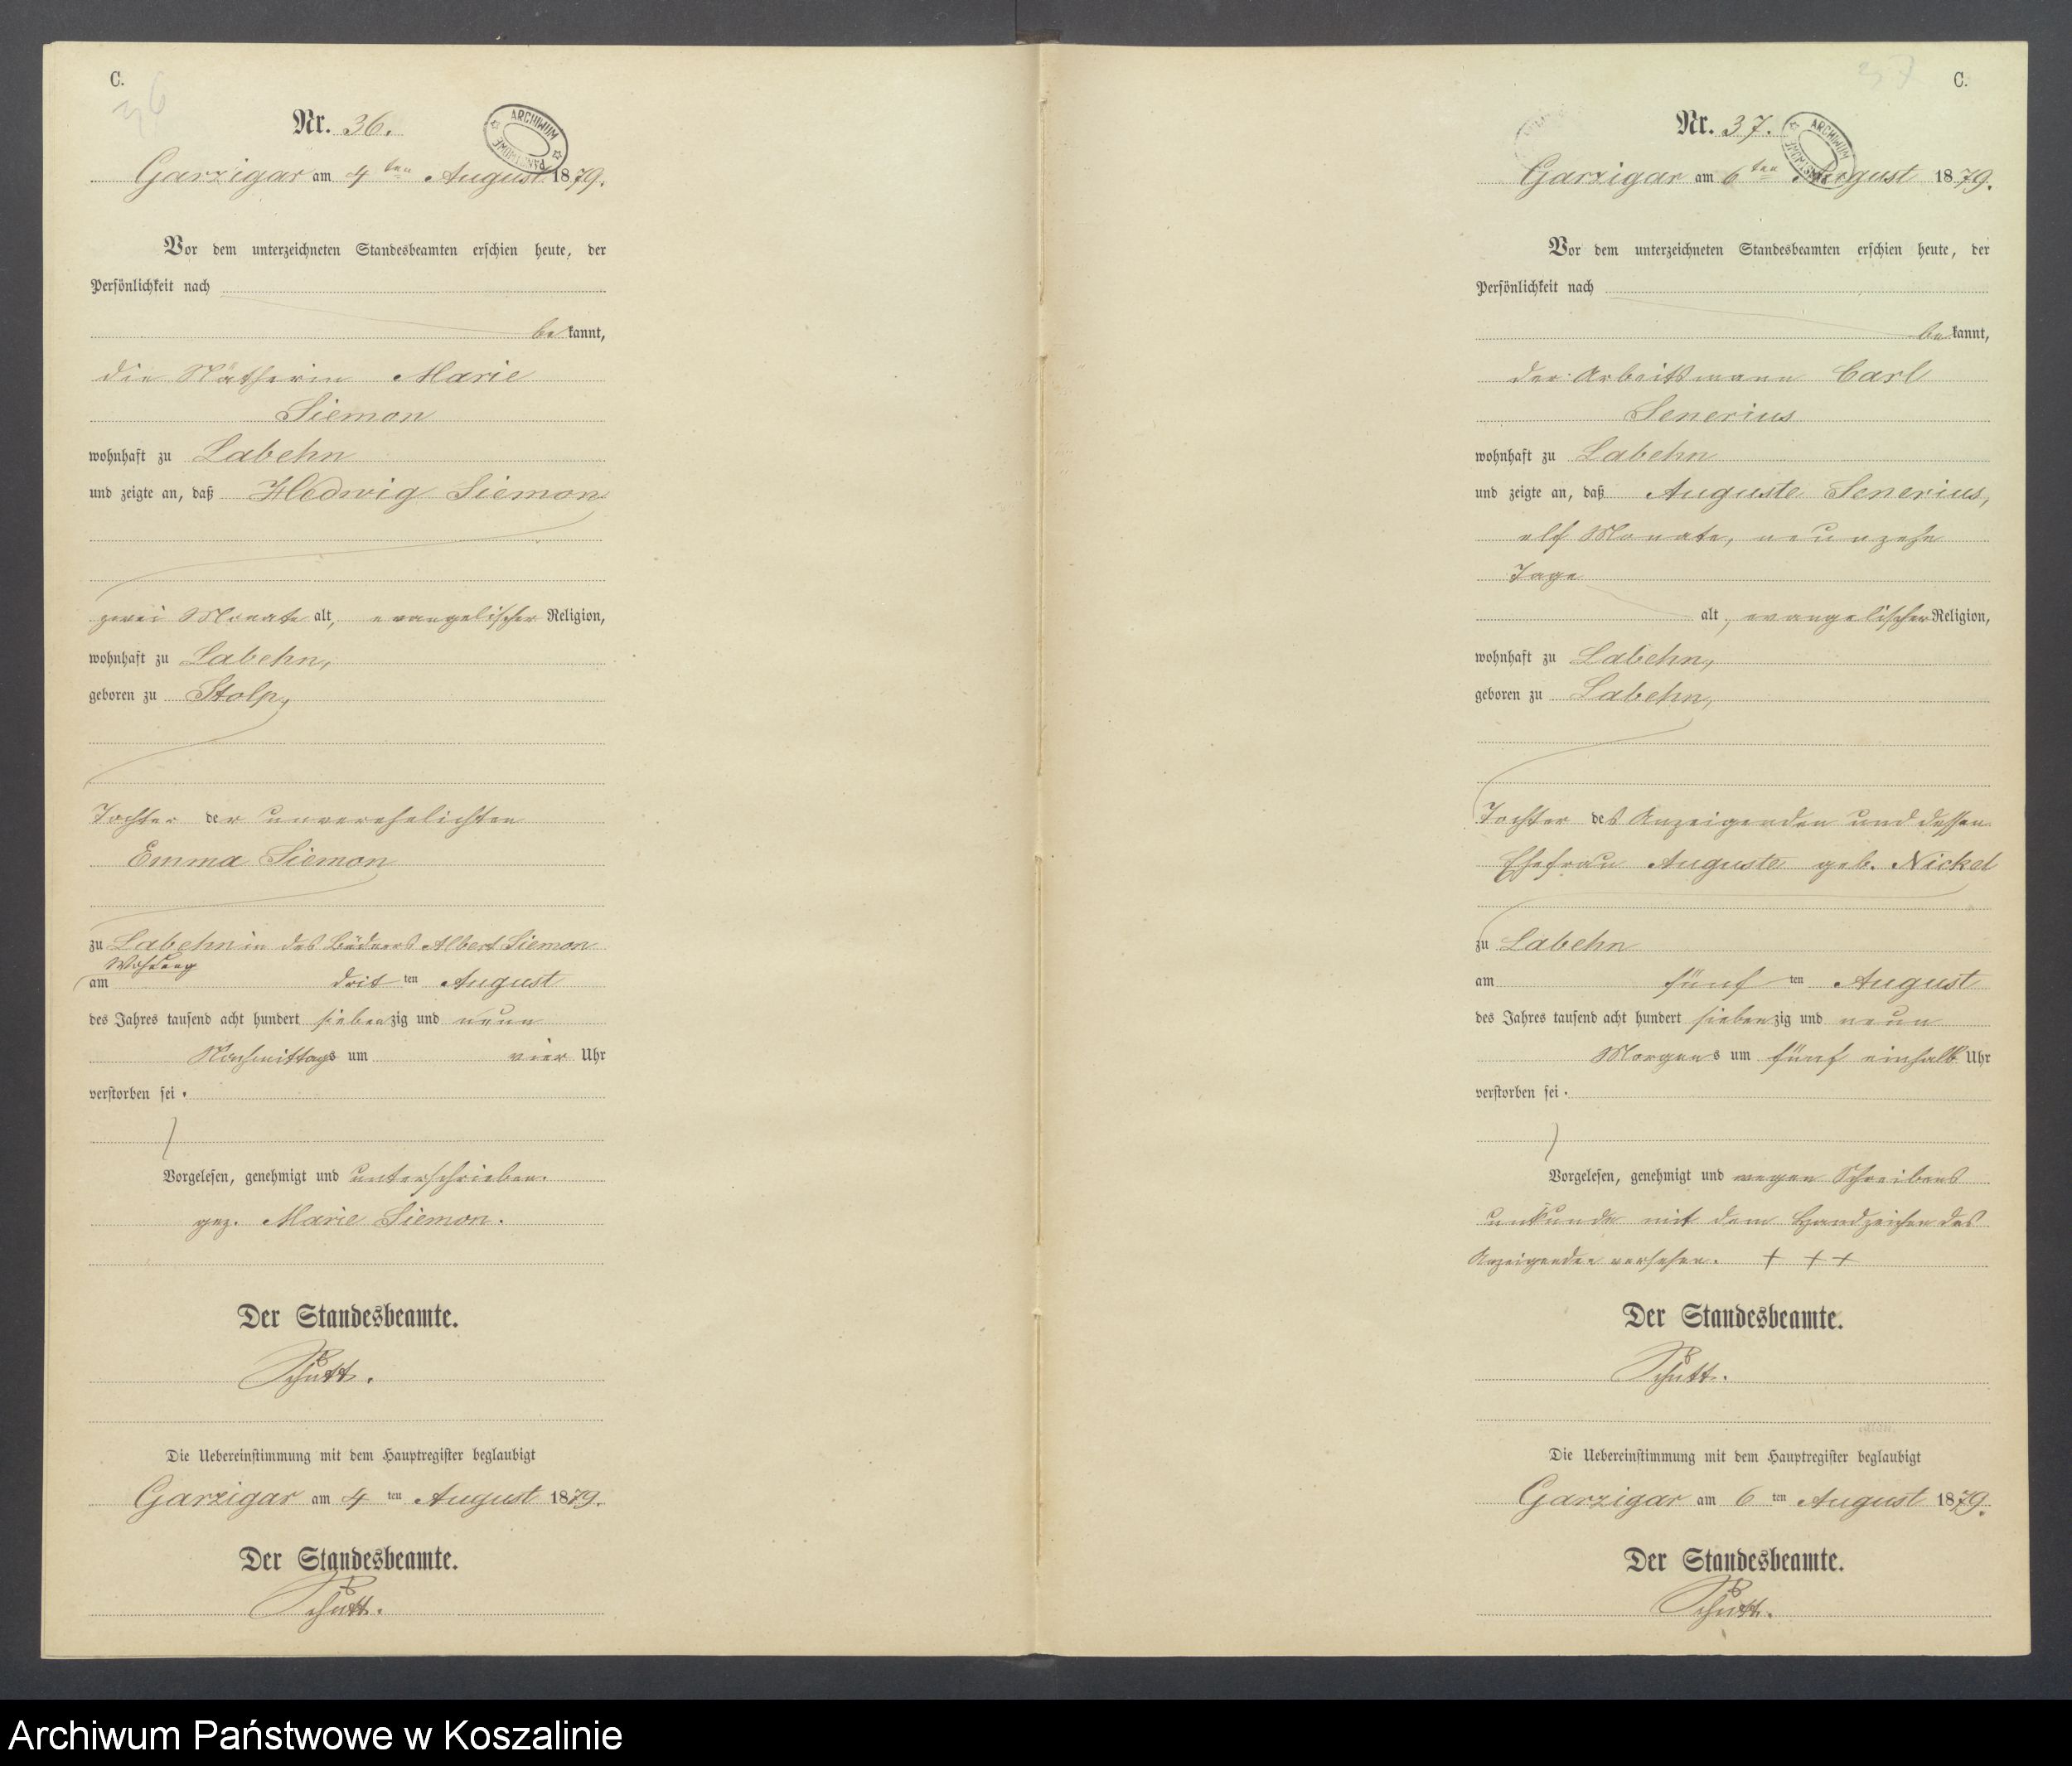 C.
36
Nr. 36.
ARCHIWUM PAŃSTWOWE
Garzigar am 4 ten August 1879.
Vor dem unterzeichneten Standesbeamten erschien heute, der
Persönlichkeit nach
bekannt,
die Nätherin Marie
Siemon
wohnhaft zu Labehn
und zeigte an, daß Hedwig Siemon
zwei Monate alt, evangelischer Religion,
wohnhaft zu Labehn,
geboren zu Stolp,
Tochter der unverehelichten
Emma Siemon
zu Labehn in des Büdners Albert Siemon
Wohnung
am dritten August
des Jahres tausend acht hundert siebenzig und neun
Nachmittags um vier Uhr
verstorben sei.
Vorgelesen, genehmigt und unterschrieben.
gez. Marie Siemon.
Der Standesbeamte.
Schütt.
Die Uebereinstimmung mit dem Hauptregister beglaubigt
Garzigar am 4 ten August 1879.
Der Standesbeamte.
Schütt.
37
C.
Nr. 37.
ARCHIWUM PAŃSTWOWE
Garzigar am 6 ten August 1879.
Vor dem unterzeichneten Standesbeamten erschien heute, der
Persönlichkeit nach
bekannt,
der Arbeitsmann Carl
Senerius
wohnhaft zu Labehn
und zeigte an, daß Auguste Senerius,
elf Monate, neunzehn
Tage
alt, evangelischer Religion,
wohnhaft zu Labehn,
geboren zu Labehn,
Tochter des Anzeigenden und dessen
Ehefrau Auguste geb. Nickel
zu Labehn
am fünften August
des Jahres tausend acht hundert siebenzig und neun
Morgens um fünf einhalb Uhr
verstorben sei.
Vorgelesen, genehmigt und wegen Schreibens
unkunde mit dem Handzeichen des
Anzeigenden versehen. + + +
Der Standesbeamte.
Schütt.
Die Uebereinstimmung mit dem Hauptregister beglaubigt
Garzigar am 6 ten August 1879.
Der Standesbeamte.
Schütt.
Archiwum Państwowe w Koszalinie